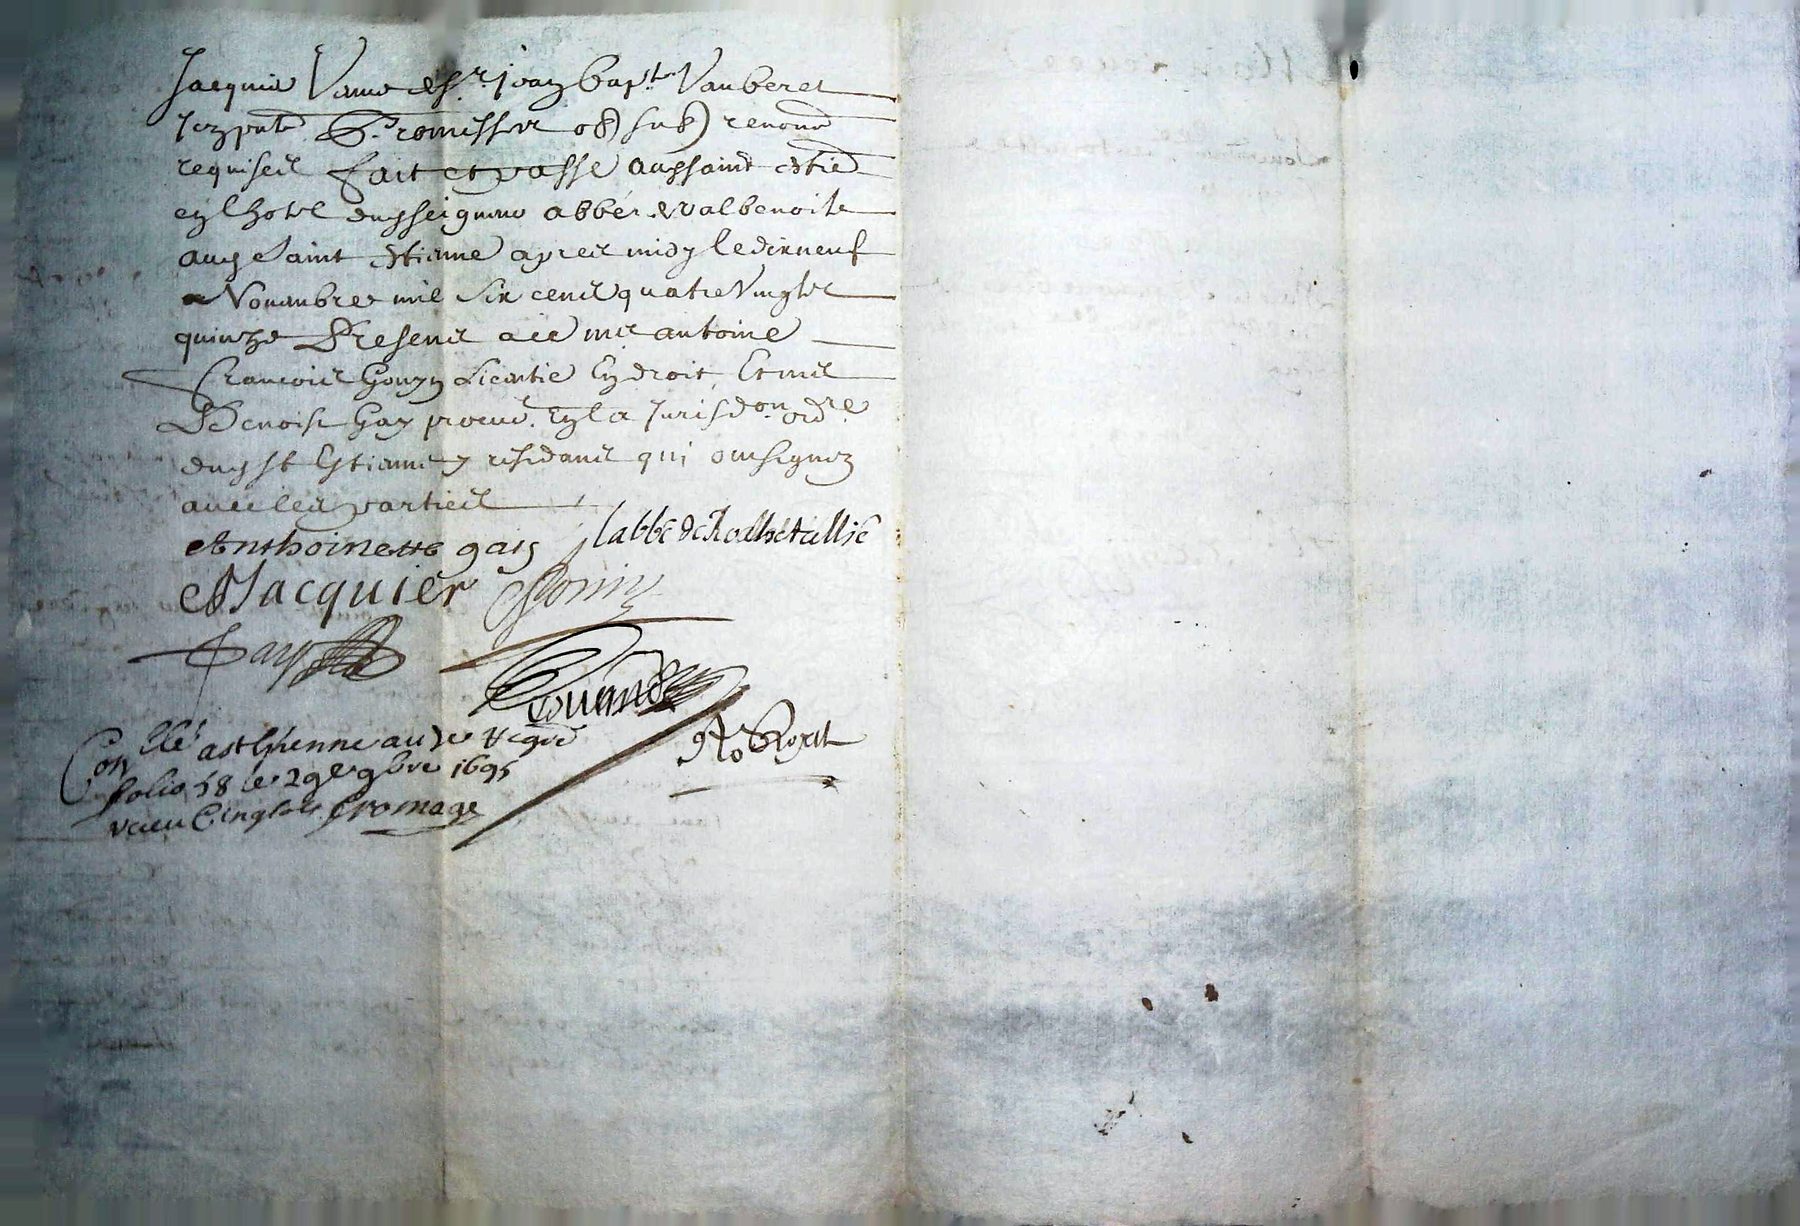 Jacquier Vefue de Sr. Jean bapte. Vauberet
Icy pnte. Promisse obl sub renonc
requises fait et passe audt saint Etie
en lhotel dudt seigneur abbé de valbenoite
audt saint Etienne apres midy le dixneuf
Novambre mil six cens quatre vingts
quinze Presens a ce mre antoine
francois Gonyn Licentie en droit, Et me
Benoist Gay procur. En la Jurisdon. ordre.
dudt st Estienne y residans qui ont signez
avec les parties
Anthoinette gais labbe de
M Jacquier Gonin
Gay
Conlle. a st Etienne au
folio 58 le 29e 9bre 1695
receu Cinq sols fromage